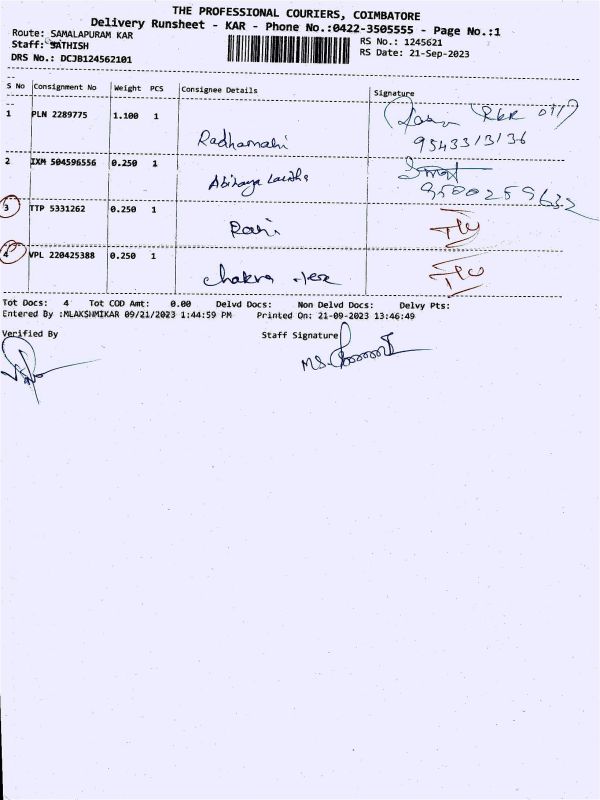 THE PROFESSIONAL COURIERS, COIMBATORE
Delivery Runsheet - KAR - Phone No.:0422-3505555 - Page No.:1
Route: SAMALAPURAM KAR
RS No.: 1245621
Staff: SATHISH
RS Date: 21-Sep-2023
DRS No.: DCJB124562101
S No Consignment No Weight PCS Consignee Details Signature
1 PLN 2289775 1.100 1
Radhamani
9543313136
2 IXM 504596556 0.250 1
9500259632
3 TTP 5331262 0.250 1
4 VPL 220425388 0.250 1
Chakra
Tot Docs: 4 Tot COD Amt: 0.00 Delvd Docs: Non Delvd Docs: Delvy Pts:
Entered By :MLAKSHMIKAR 09/21/2023 1:44:59 PM Printed On: 21-09-2023 13:46:49
Verified By Staff Signature